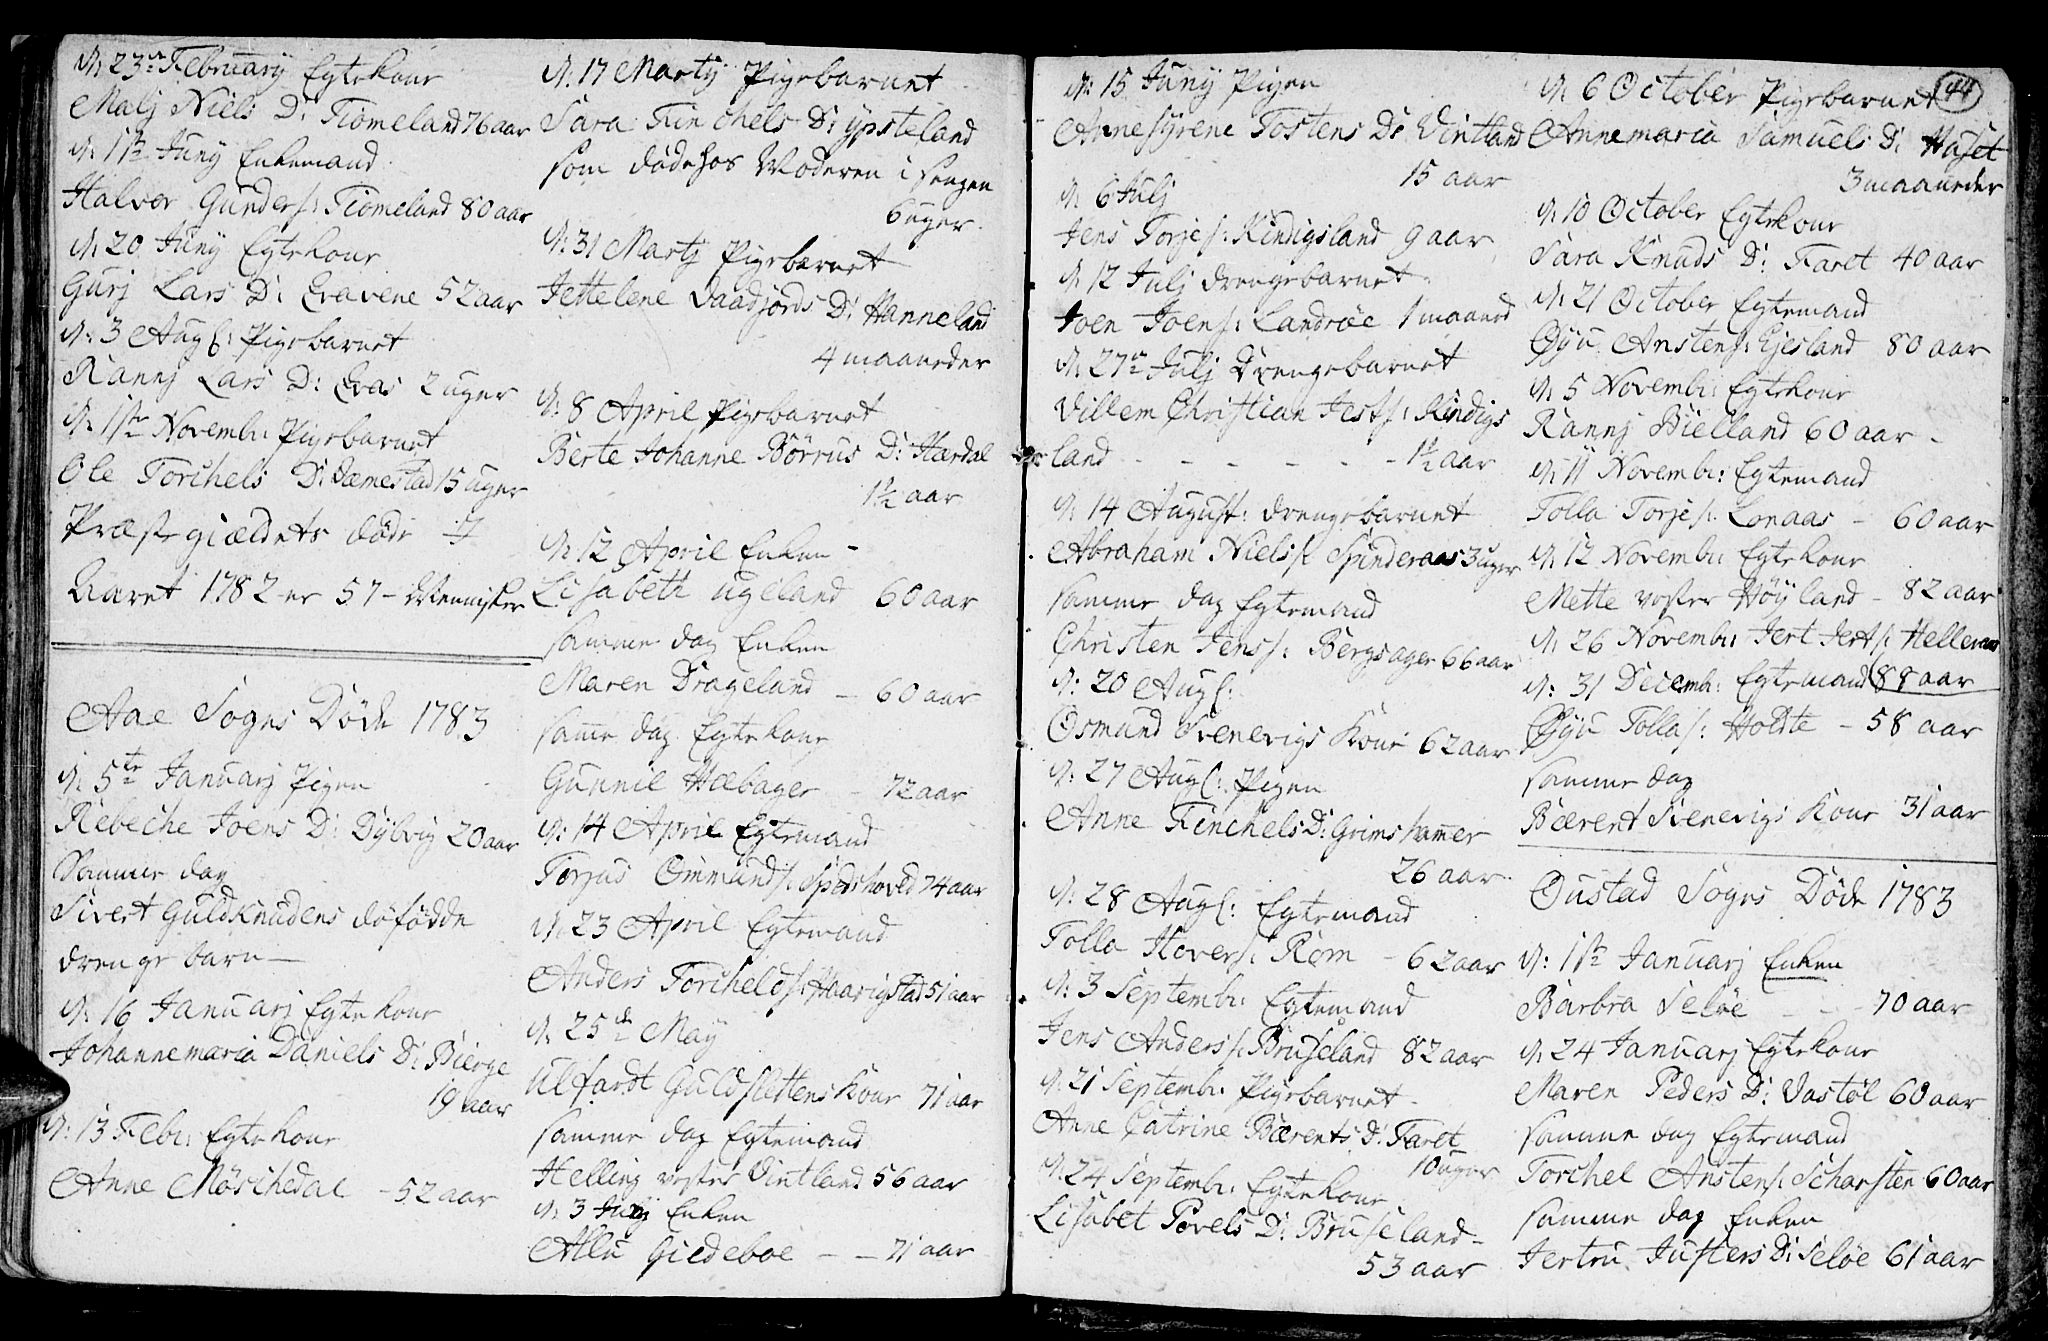 d: 23de February Egtekone
Malj Niels D: Tiomeland 76 aar
d: 1ste Juny Enkemand
Halvor Gunders: Tiomeland 80 aar
d: 20 Juny Egtekone
Gurj Lars D: Qvavene 52 aar
d: 3 Aug: Pigebarnet
Rannj Lars D: Qvas 2 uger
d: 1ste Novemb: Pigebarnet
Ole Torchels D: Dæmestad 15 uger
Præstegiældets döde
Aaret 1782 er 57 - Mennisker
Aae Sogns Döde 1783
d: 5te Januarj Pigen
Rebeche Joens D: Dybvig 20 aar
Samme dag
Sivert Guldknudens döfödde
drenge barn -
d: 16 Januarj Egte kone
Johannemaria Daniels D: Bierge
19 aar
d: 13 Feb: Egtekone
Anne Möschedal - 52 aar
d: 17 Martj Pigebarnet
Sara Finchels D: ÿpsteland
som döde hos Moderen i sengen
6 uger.
d: 31 Martj Pigebarnet
Jettelene Daadjords D: Hanneland
4 maaneder
d: 8 April Pigebarnet
Berte Johanne Börrus D: Hærdal
1½ aar
d: 12 April Enken -
Lisabeth ugeland 60 aar
samme dag Enken
Maren Drageland - 60 aar
samme dag Egtekone
Gunnil Hæbager - 72 aar
d: 14 April Egtemand
Torjus Ommunds: Spodshoved 74 aar
d. 23 April Egtemand
Anders Torchelds: Haarigstad 51 aar
d. 25de May
Ulfardt Guldslettens Kone 71 aar
samme dag Egtemand
Helling vester Vintland 56 aar
d. 3 Julj Enken
Allu Giedeboe - - 71 aar
d: 15 Juny Pigen
Annesyrene Tostens D: Vintland
15 aar
d: 6 Julj
Jens Torjes: Kindigsland 9 aar
d. 12 Julj drengebarnet
Joen Joens: Landröe 1 maaned
d. 27de Julj Drengebarnet
Villem Christian Jests: Kindigs
land - - - - - - 1½ aar
d: 14 August: drengebarnet
Abraham Niels: Spinderaas 3 uger
samme dag Egtemand
Christen Jenss: Bergsager 66 aar
d: 20 Aug:
Osmund Svenevigs Kone 62 aar
d: 27 Aug: Pigen
Anne Finchels D: Grimshammer
26 aar.
d. 28 Aug: Egtemand
Tolla Hovers: Röm - 62 aar
d: 3 Septemb: Egtemand
Jens Anderss: Bruseland 82 aar
d. 21 Septemb: Pigebarnet -
Anne Catrine Bærents D: Faret
10 uger
d. 24 Septemb: Egtekone
Lisabet Povels D: Bruseland -
53 aar
44
d. 6 October Pigebarnet
Annemaria Samuels D: Huset
3 maaneder
d: 10 October Egtekone
Sara Knuds D: Faret 40 aar
d: 21 October Egtemand
Öyu Anstens: Ejesland 80 aar
d. 5 Novemb: Egtekone
Rannj Bielland 60 aar -
d. 11 Novemb: Egtemand
Tolla Torjes: Lonaas - 60 aar
d. 12 Novemb: Egtekone
Mette vester Höyland - 82 aar
d. 26 Novemb: Jert Jerts: Helleraas
88 aar
d: 31 Decemb: Egtemand
Öyu Tollas: Holdte - 58 aar
samme dag
Bærent Svenevigs Kone 31 aar
Oustad Sogns Döde 1783
d: 1ste Januarj Enken
Barbra Selöe - - - 70 aar
d. 24 Januarj Egtekone
Maren Peders D: Vastöl 60 aar
samme dag Egtemand
Torchel Anstens: Scharsten 60 aar
samme dag Enken
Jertru Justers D: Selöe 61 aar